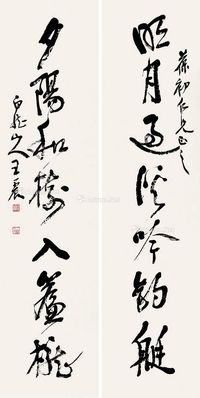 明月過溪吟釣艇
葆初仁兄正之
夕陽和樹入簾櫳
白龍山人王震